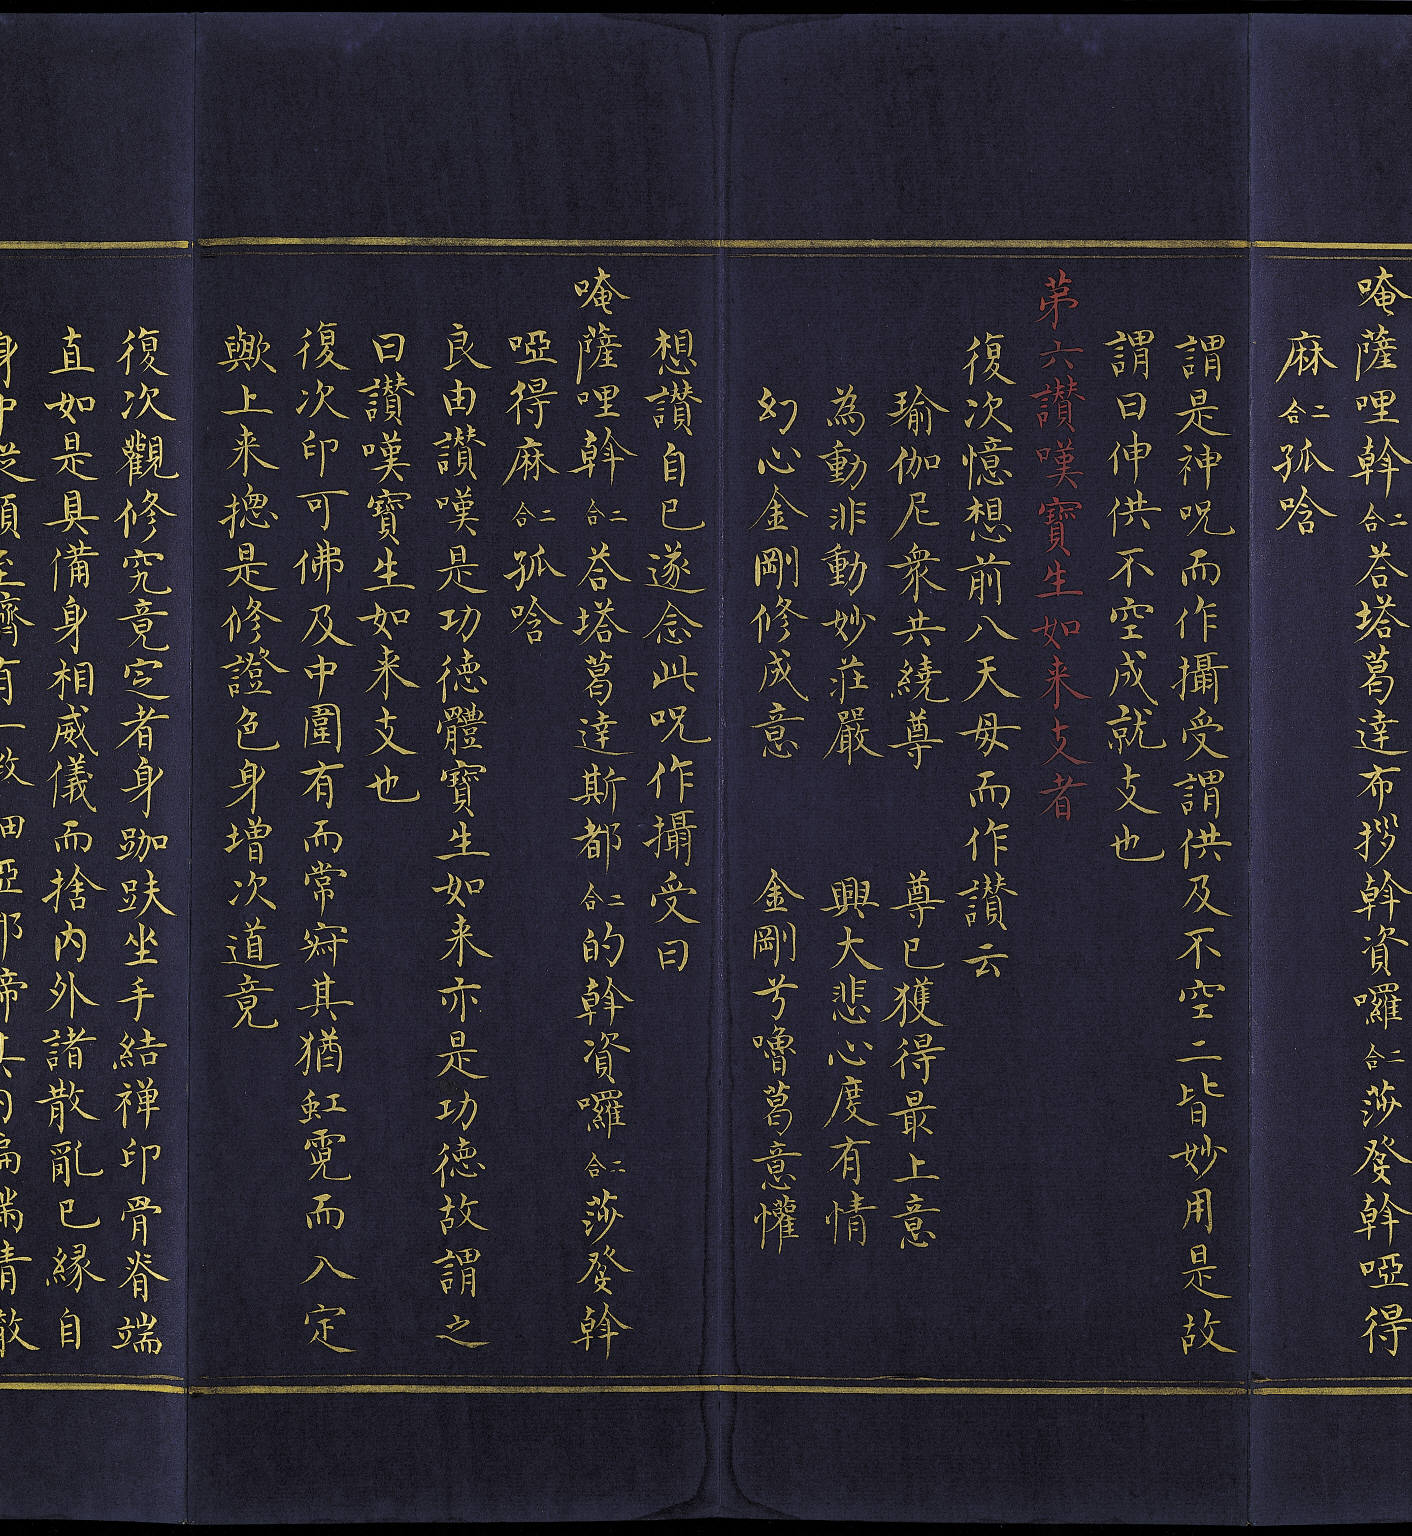 唵薩哩斡二合荅塔葛達布拶斡資囉二合莎發斡啞得
麻二合孤唅
謂是神呪而作攝受謂供及不空二皆妙用是故
謂曰伸供不空成就支也
第六讃嘆寳生如来支者
復次憶想前八天母而作讃云
瑜伽尼衆共繞尊　尊已獲得最上意
為動非動妙莊嚴　興大悲心度有情
幻心金剛修成意　金剛兮嚕葛意懽
想讃自已遂念此呪作攝受曰
唵薩哩斡二合荅塔葛達斯都二合的斡資囉二合莎發斡
啞得麻二合孤唅
良由讃嘆是功德體寳生如来亦是功德故謂之
曰讃嘆寳生如来支也
復次印可佛及中圍有而常寂其猶虹霓而入定
歟上来揔是修證色身增次道竟
復次觀修究竟定者身跏趺坐手結禅印骨脊端
直如是具備身相威儀而捨内外諸散亂已縁自